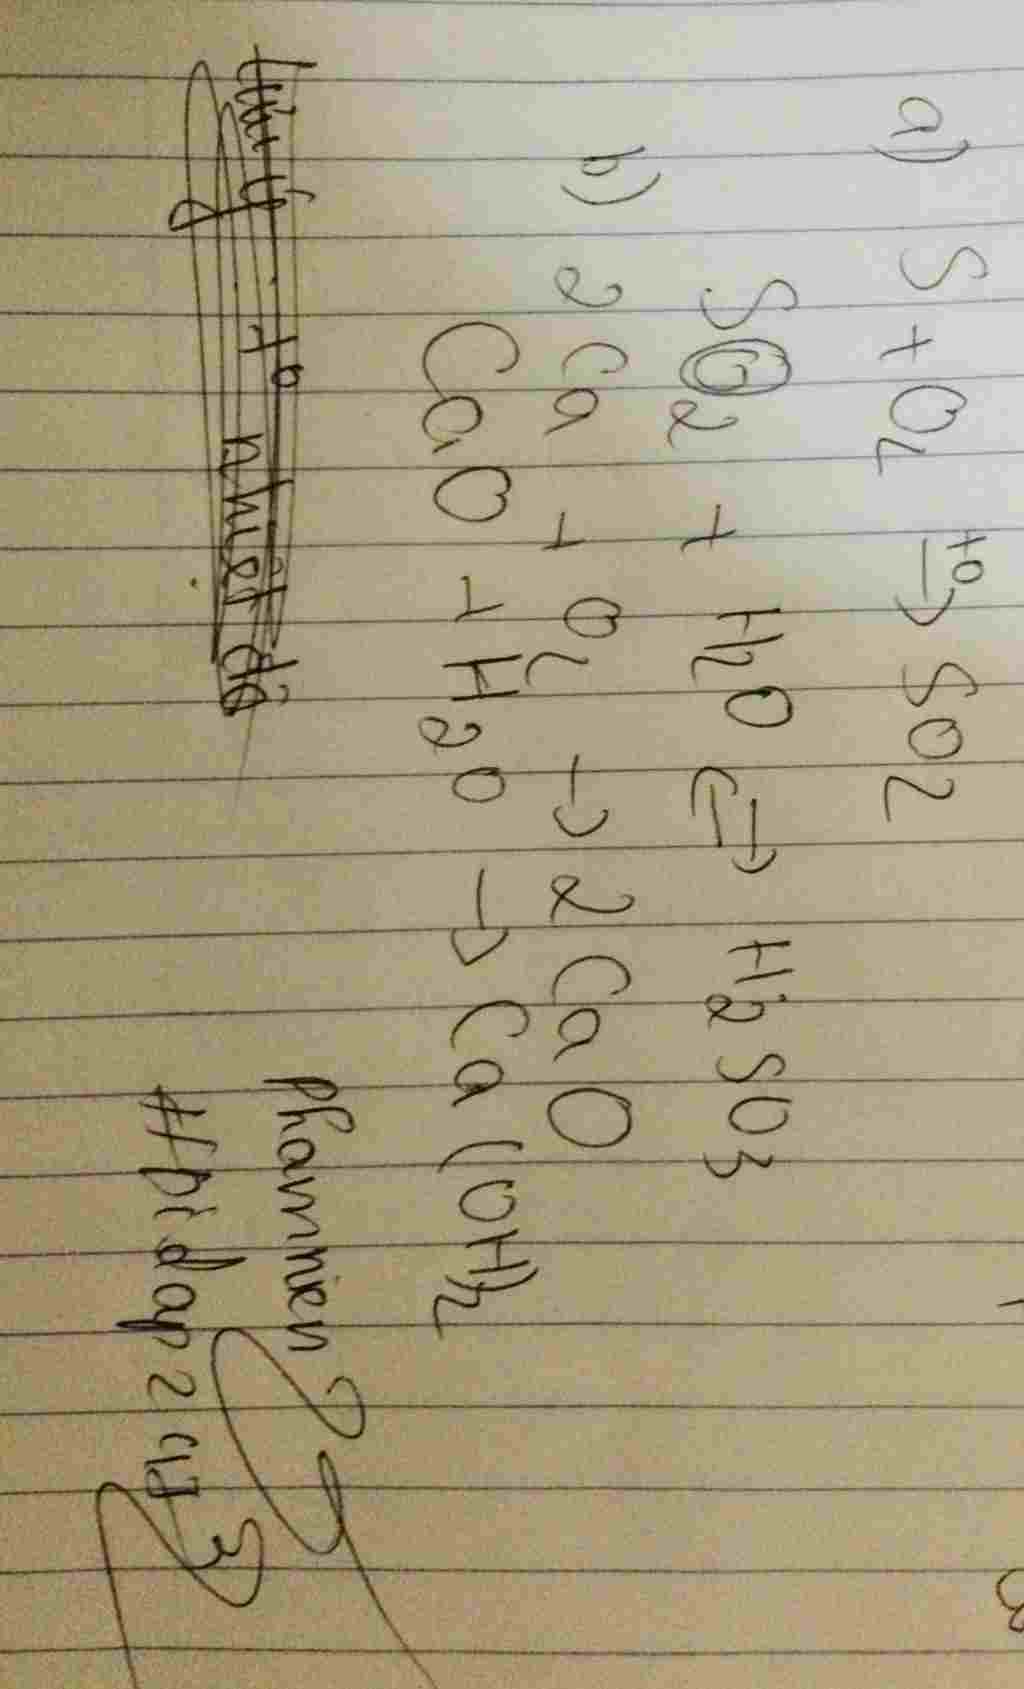 a) S + O2 t° → SO2
SO2 + H2O ⇄ H2SO3
b) 2Ca + O2 → 2CaO
CaO + H2O → Ca(OH)2
t° nhiệt độ
phamnien
#